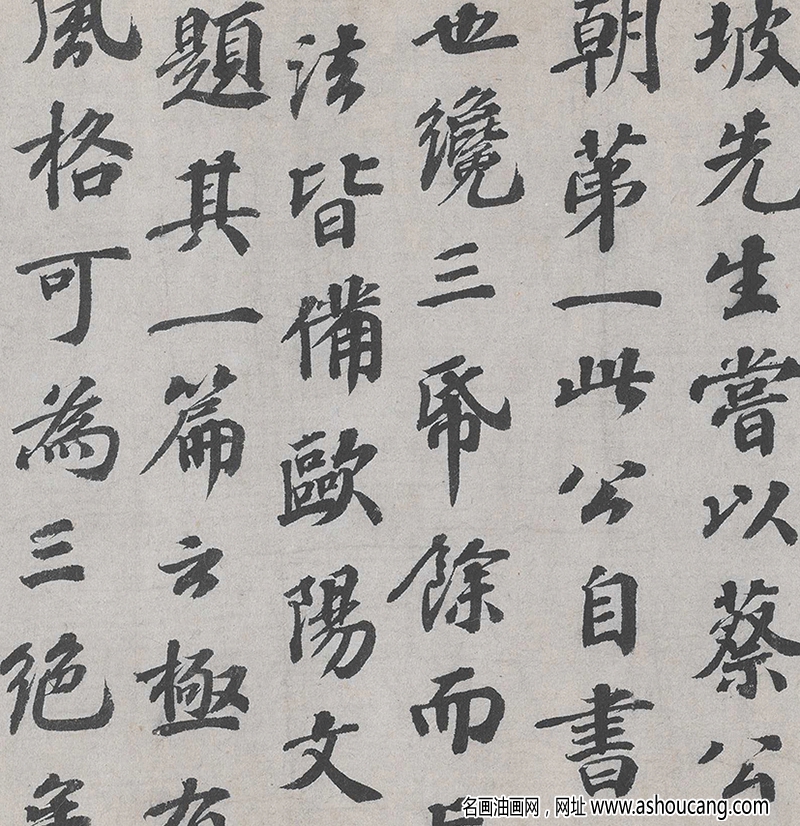 坡先生嘗以蔡公
朝第一此公自書
也纔三帋餘而
法皆備歐陽文
題其一篇云極有
風格可為三絕
名画油画网，网址 www.ashoucang.com